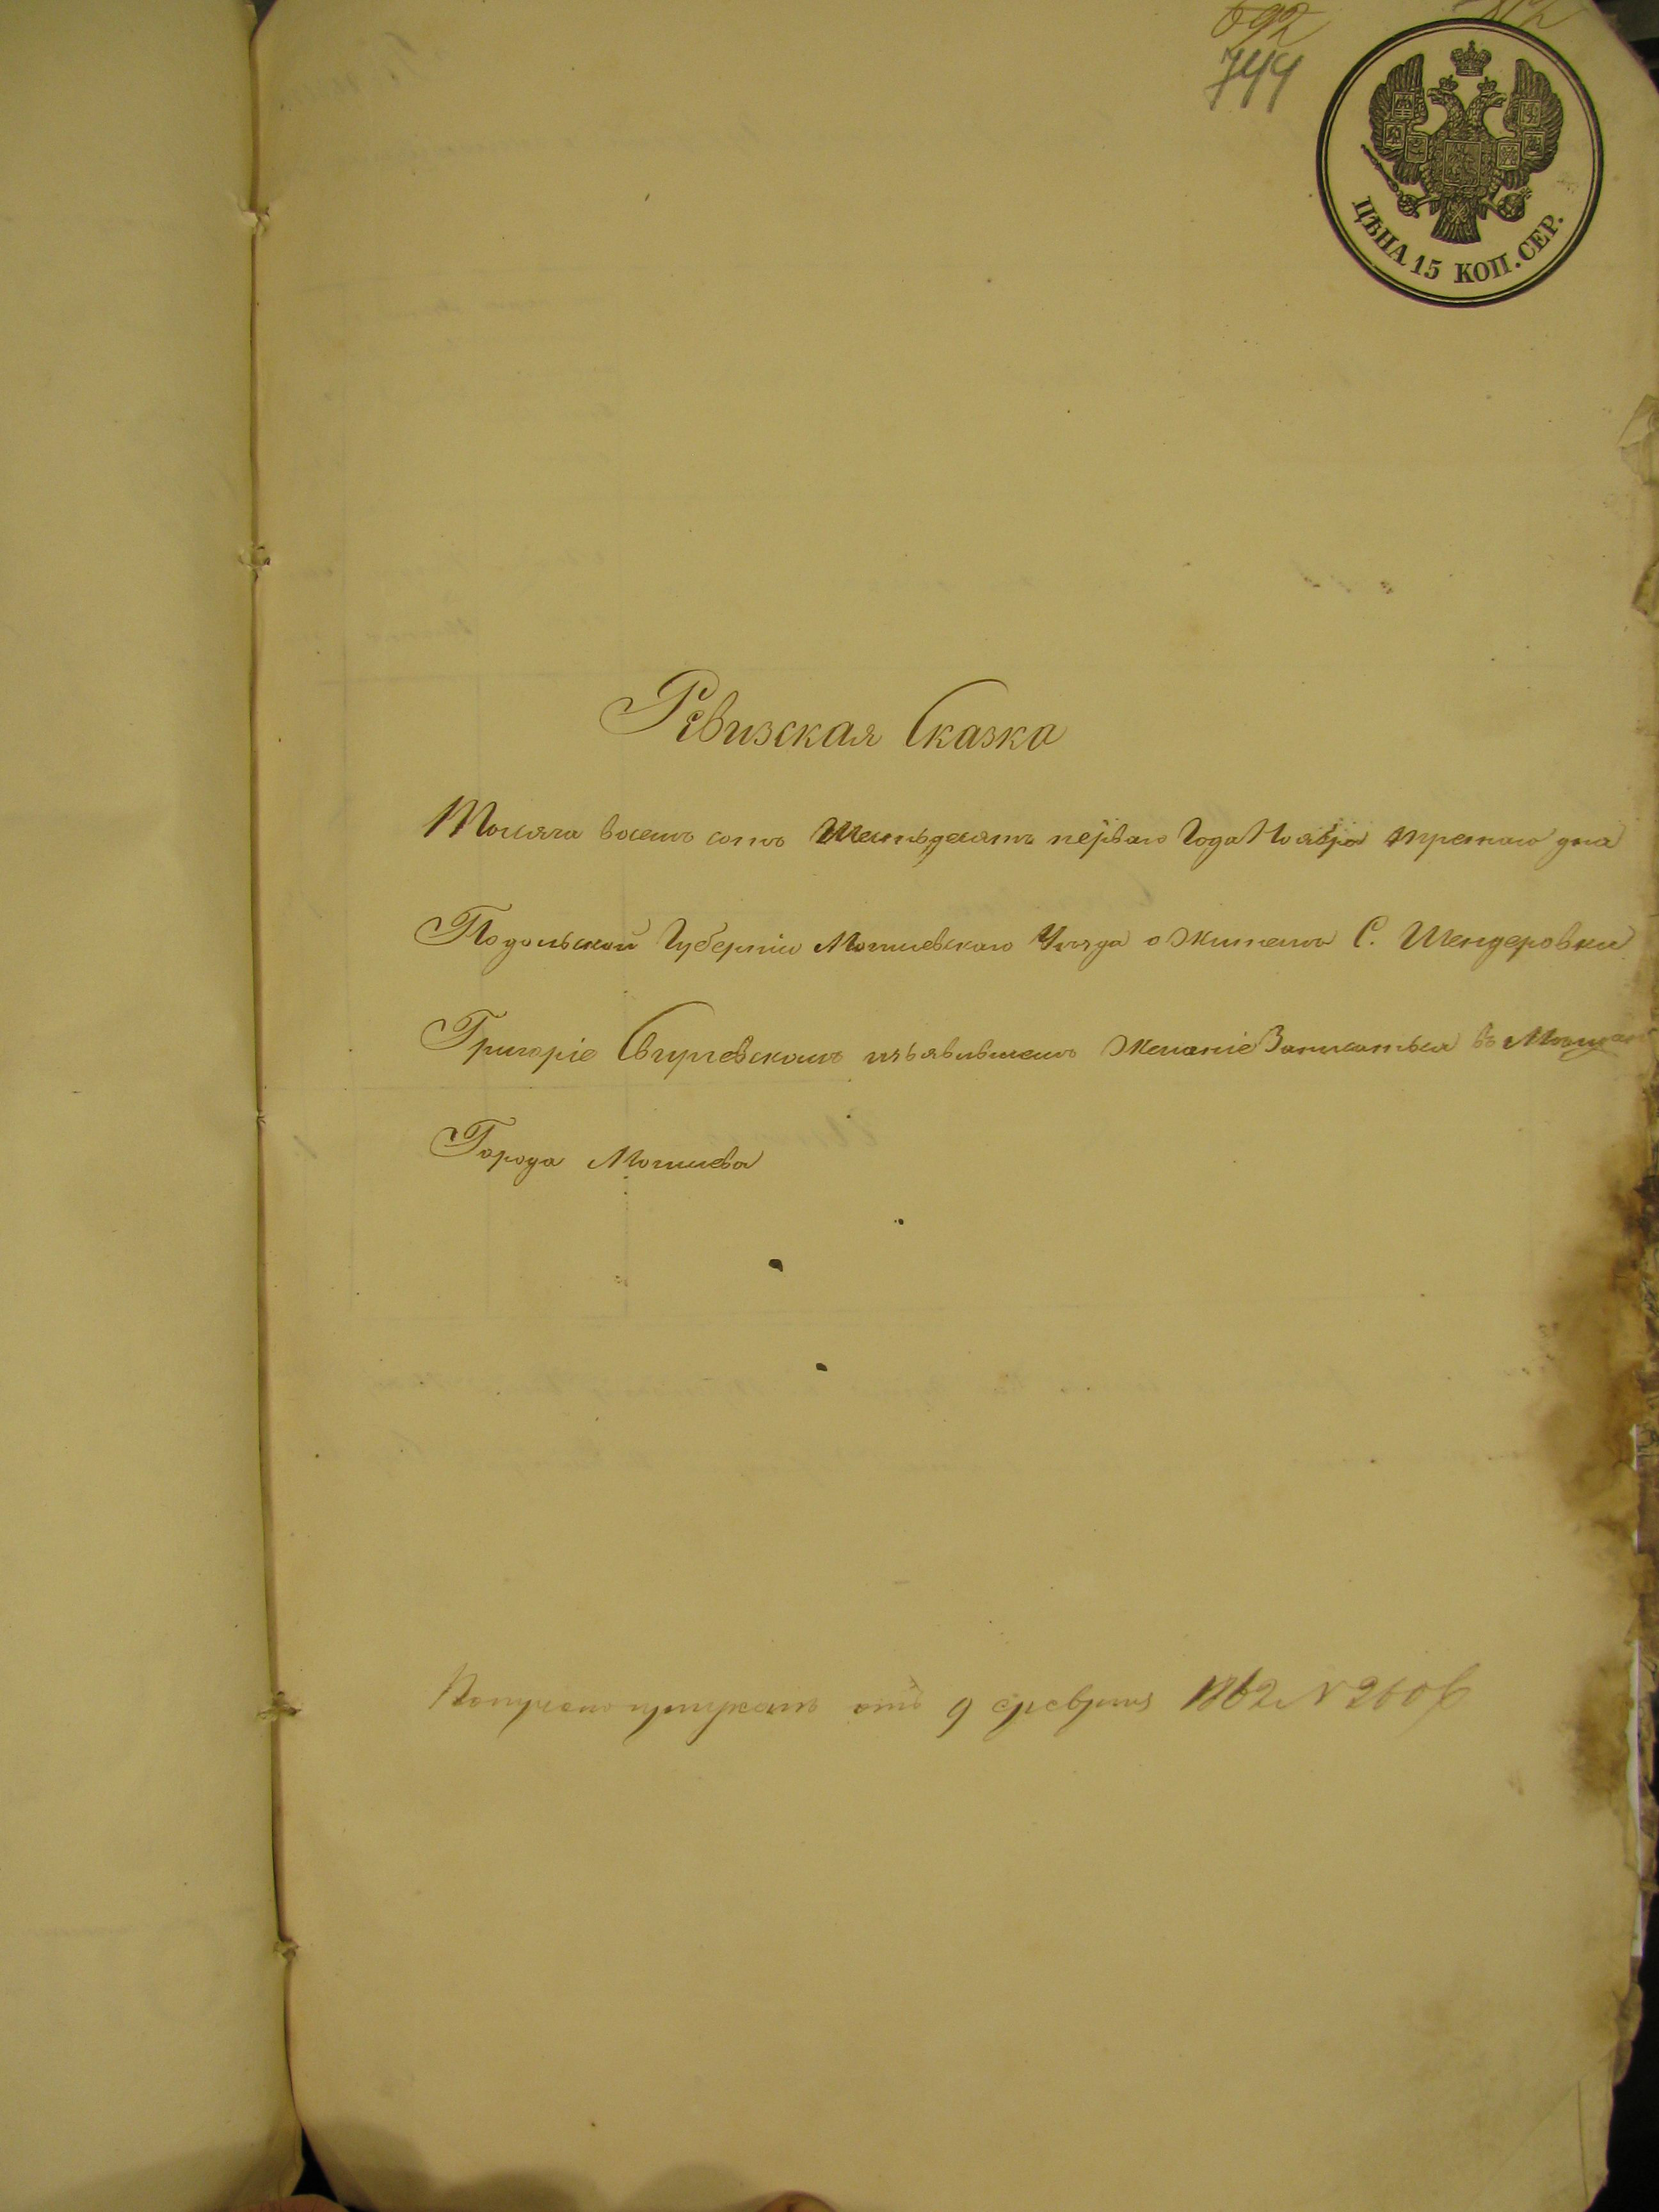 692
744
ЦѢНА 15 КОП. СЕР.
Ревизская Сказка
Тысяча восемь сотъ Шестьдесятъ перваго Года Ноября третяго дня
Подольской Губерніи Могилевскаго Уѣзда о Жителѣ С. Шендеровки
Григоріе Свиргевскомъ изъявившемъ Желаніе Записаться въ Мѣщан
Города Могилева
отъ 9 февраля 1862 N 2606